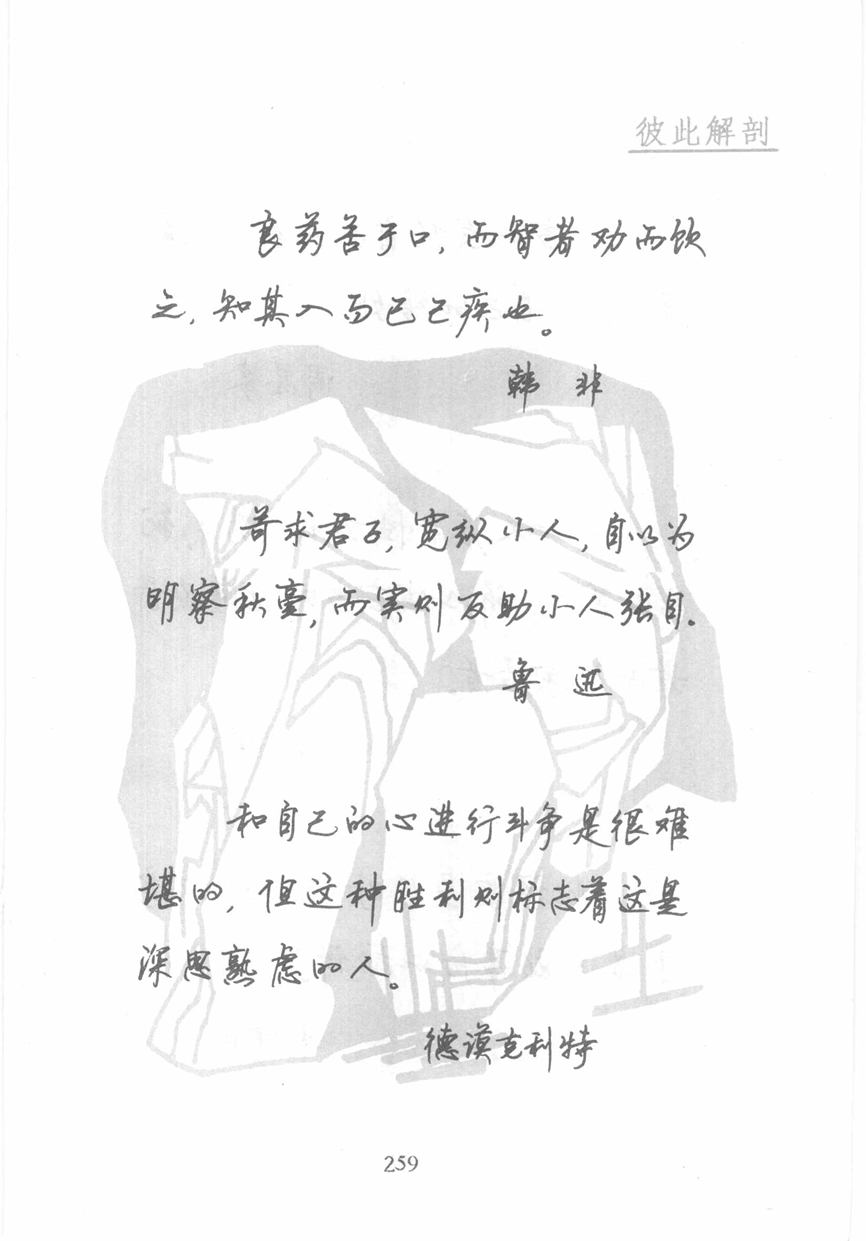 彼此解剖
良药苦于口，而智者劝而饮
之，知其入而已己疾也。
韩 非
苛求君子，宽纵小人，自以为
明察秋毫，而实则反助小人张目。
鲁 迅
和自己的心进行斗争是很难
堪的，但这种胜利则标志着这是
深思熟虑的人。
德谟克利特
259